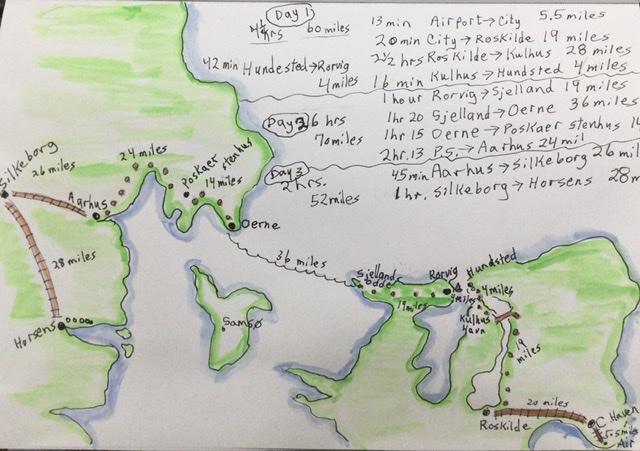 Day 1
4½ hrs 60 miles
13 min Airport→City 5.5 miles
20 min City→Roskilde 19 miles
2½ hrs Roskilde→Kulhus 28 miles
42 min Hundested→Rorvig
4 miles
16 min Kulhus→Hundsted 4 miles
1 hour Rorvig→Sjelland 19 miles
Day 2 6 hrs
70 miles
1hr 20 Sjelland→Oerne 36 miles
1hr 15 Oerne→Poskaer stenhus 14
2hr. 13 P.S.→Aarhus 24 mil
Day 3
2 hrs.
52 miles
45 min Aarhus→Silkeborg 26 mil
1 hr. Silkeborg→Horsens 28 m
Silkeborg
26 miles
Aarhus
24 miles
Poskaer Stenhus
14 miles
Oerne
28 miles
Horsens
36 miles
Samsø
Sjellands
odde
19 miles
Rorvig
Hundsted
4 miles
4 miles
Kulhus
havn
19
miles
Roskilde
20 miles
C. Haven
5.5 miles
Air